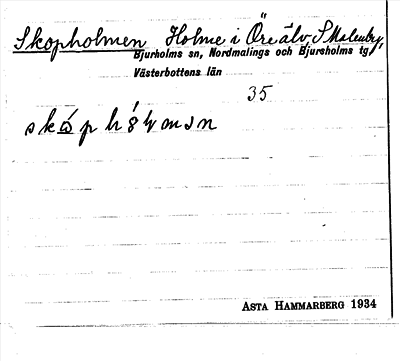 Skopholmen Holme i Öreälv, S Malenby,
Bjurholms sn, Nordmalings och Bjursholms tg
Västerbottens län
35
ASTA HAMMARBERG 1934